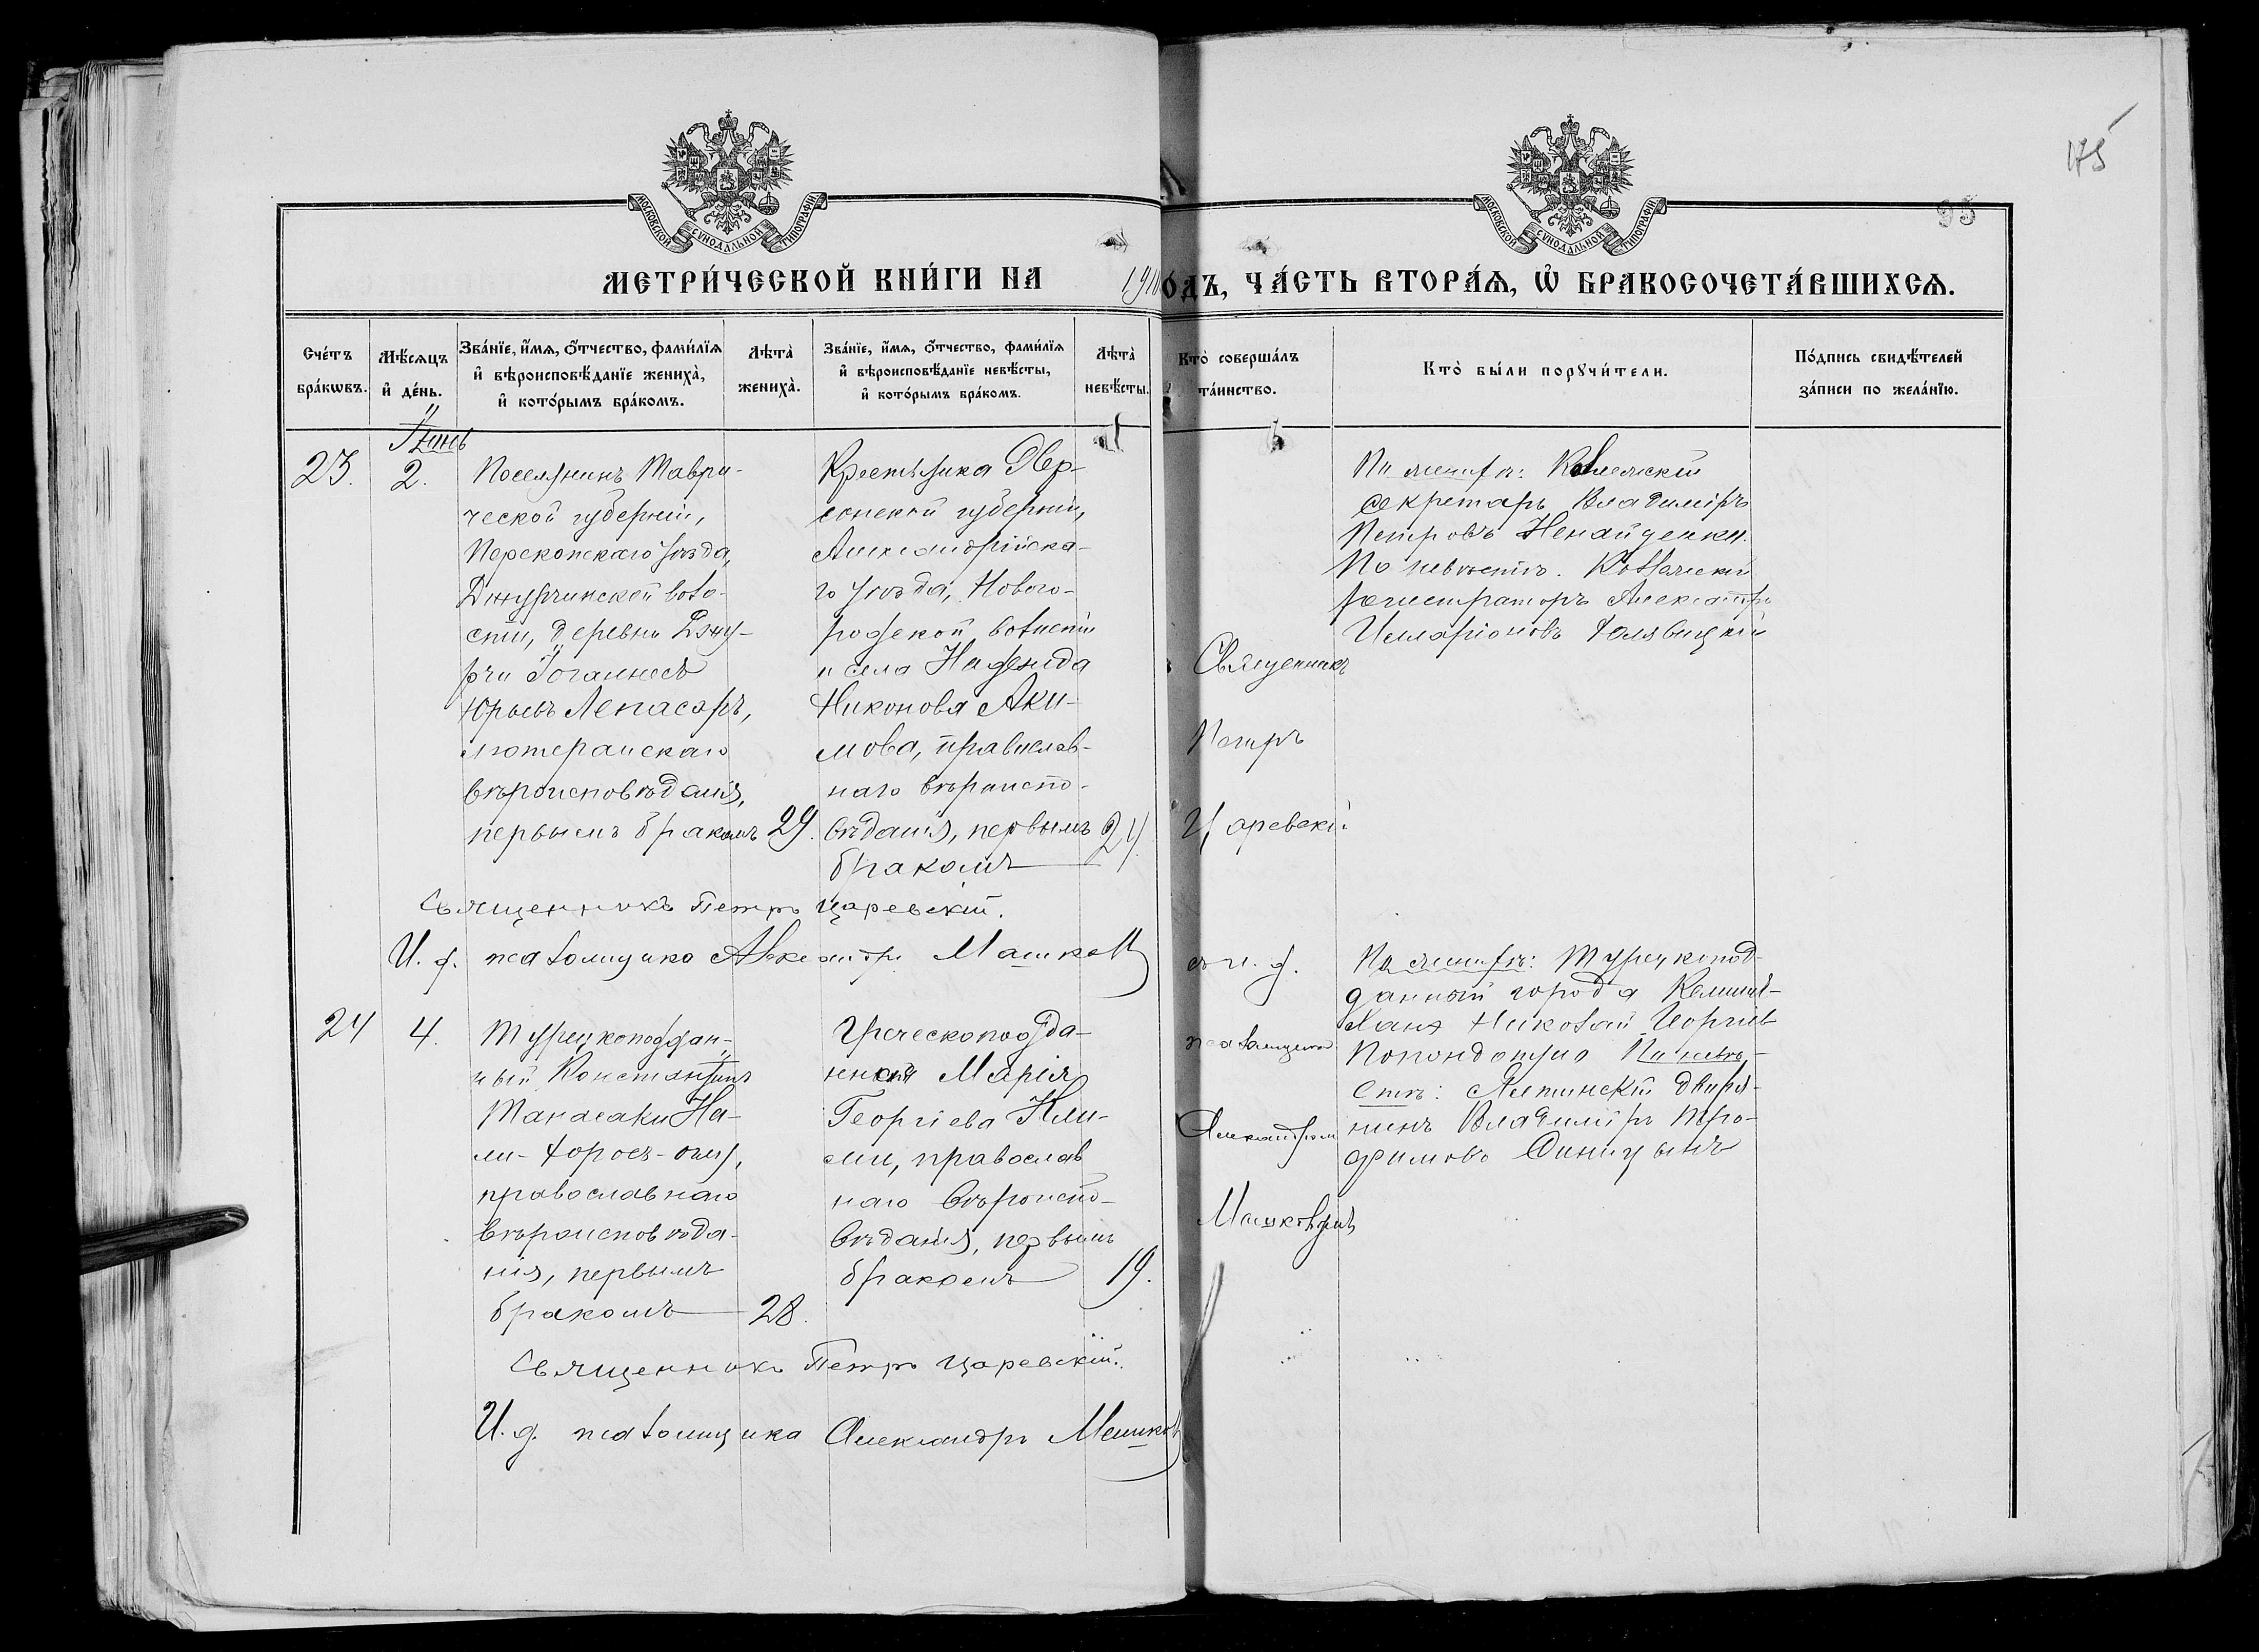 175
95
МОСКОВСКОЙ СѴНОДАЛЬНОЙ ТИПОГРАФІИ
МОСКОВСКОЙ СѴНОДАЛЬНОЙ ТИПОГРАФІИ
МЕТРИ́ЧЕСКОЙ КНИ́ГИ НА 1910
О́ДЪ, ЧА́СТЬ ВТОРА́Ѧ, Ѽ БРАКОСОЧЕТА́ВШИХСѦ.
Сче́тъ бра́кѡвъ.
Мѣ́сѧцъ и҆ де́нь.
Зва́нїе, и҆́мѧ, ѻ҆́тчество, фами́лїѧ и҆ вѣроисповѣ́данїе жениха̀, и҆ кото́рымъ бра́комъ.
Лѣта̀ жениха̀.
Зва́нїе, и҆́мѧ, ѻ҆́тчество, фами́лїѧ и҆ вѣроисповѣ́данїе невѣ́сты, и҆ кото́рымъ бра́комъ.
Лѣта̀ невѣ́сты.
Кто̀ соверша́лъ та́инство.
Кто̀ бы́ли порꙋчи́тели.
По́дпись свидѣ́телей за́писи по жела́нїю.
Іюнь
23.
2.
Поселянинъ Таври-
ческой губерніи,
Перекопскаго уѣзда,
Джурчинской воло-
сти, деревни Джу-
рчи Іоганнесъ
Юрьевъ Лепасаръ,
лютеранскаго
вѣроисповѣданія,
первымъ бракомъ
29.
Крестьянка Хер-
сонской губерніи,
Александрійска-
го уѣзда, Новго-
родской волости
и села Надежда
Никонова Аки-
мова, православ-
наго вѣроиспо-
вѣданія, первымъ
бракомъ
24.
Священникъ
Петръ
Царевскій
По женихѣ: Коллежскій
секретарь Владиміръ
Петровъ Ненайденко.
По невѣстѣ. Коллежскій
регистраторъ Александръ
Илларіоновъ
Священникъ Петръ Царевскій.
И. д. псаломщика Александръ Машков
24
4.
Турецкоподдан-
ный Константинъ
Танасаки На-
ли-Форосъ-оглу,
православнаго
вѣроисповѣда-
нія, первымъ
бракомъ
28.
Греческоподда-
нная Марія
Георгіева Кли-
сми, православ
наго вѣроиспо-
вѣданія, первымъ
бракомъ
19.
съ и. д.
псаломщика
Александромъ
Машковымъ
По женихѣ: Турецкопод-
данный города
Николай Іоргіевъ
По невѣ-
стѣ: Ялтинскій дворя-
нинъ Владиміръ Тро-
фимовъ Синицынъ
Священникъ Петръ Царевскій.
И. д. псаломщика Александръ Машков